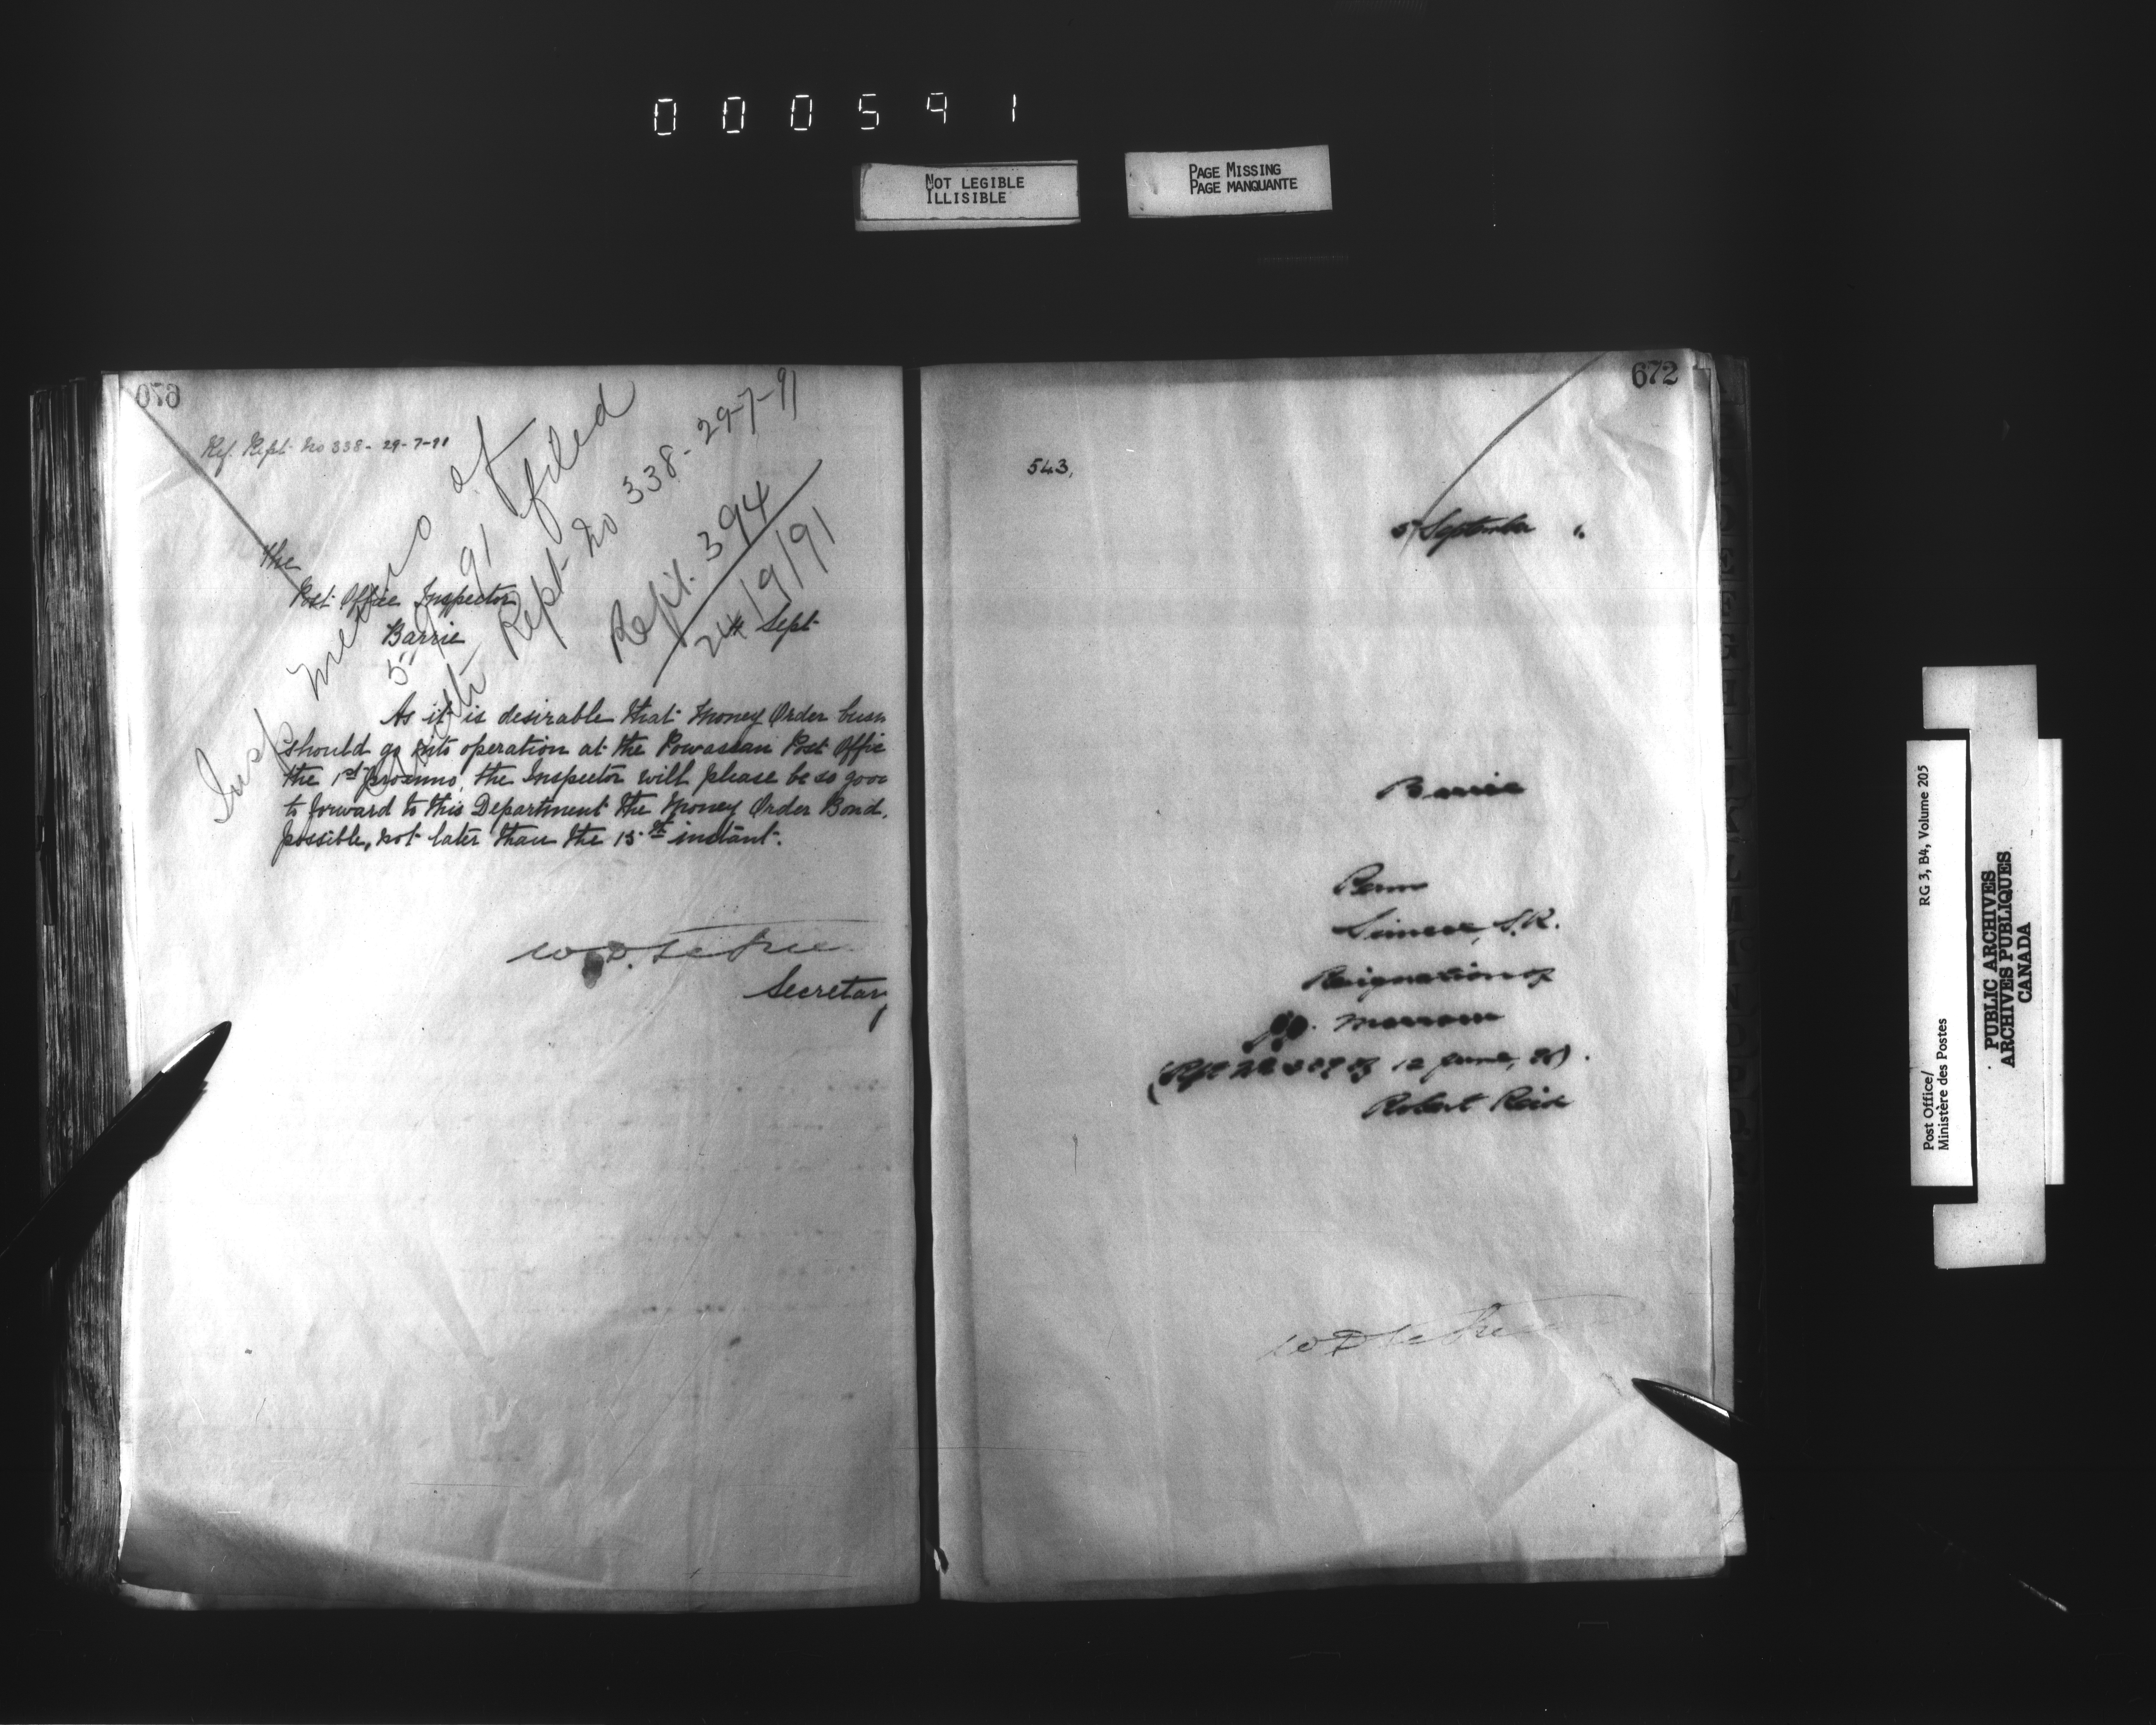 000591
NOT LEGIBLE
ILLISIBLE
PAGE MISSING
PAGE MANQUANTE
076
Ref. Rept. No 338 - 29-7-91
Insp memo of
5" 91 filed
with Rept No 338- 29-7-91
Rept. 394
24/9/91
The
Post Office Inspector
Barrie
Sept
As it is desirable that Money Order busn
should go into operation at the Powassan Post Offic
the 1st proximo, the Inspector will please be so goo
to forward to this Department the Money Order Bond,
possible, not later than the 15th instant.
Secretary
672
543,
5 September
Barrie
Simcoe, S.R.
Resignation of
12 June, 91).
Robert Reid
Post Office/
Ministère des Postes
RG 3, B4, Volume 205
PUBLIC ARCHIVES
ARCHIVES PUBLIQUES
CANADA